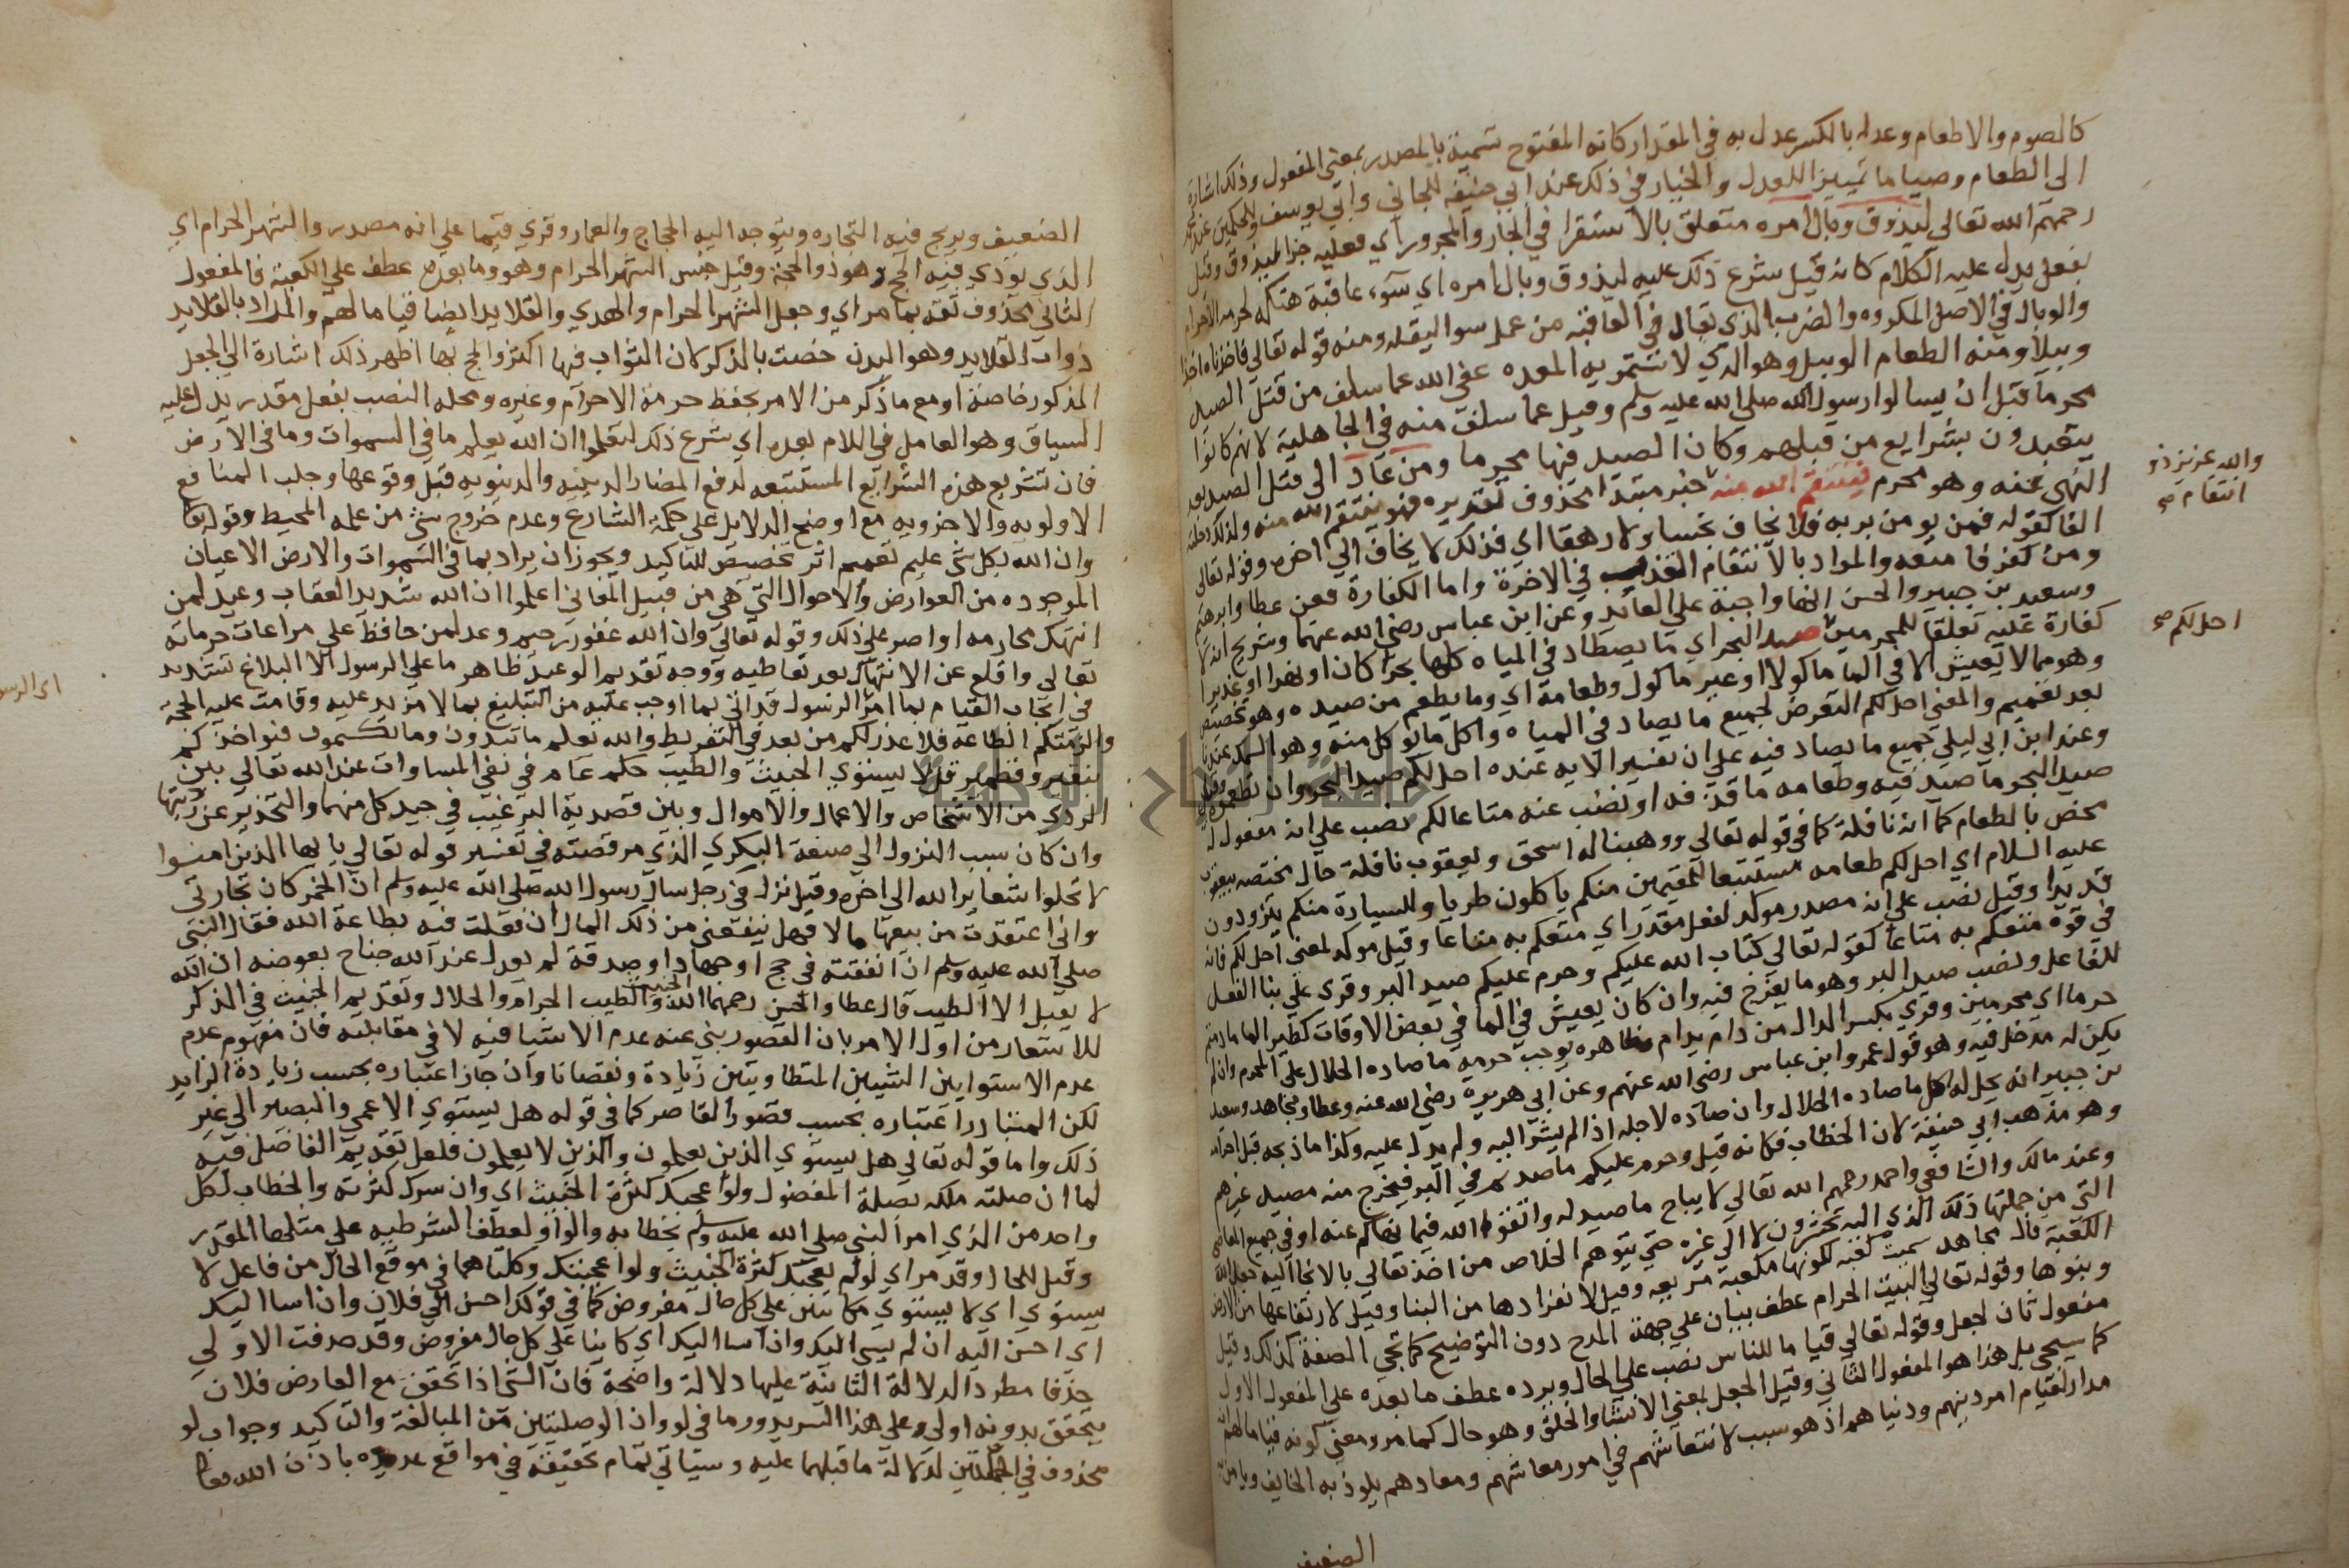 كالصوم والاطعام وعدله بالكسر عدل به في المقدار كانه المفتوح تسمية بالمصدر بمعنى المفعول وذلك اشارة
الي الطعام وصياما تمييز للعدل والخيار في ذلك عند ابي حنيفة للجاني وابي يوسف وللحكمين عند محمد
رحمهم الله تعالى ليذوق وبال امره متعلق بالاستقرار في الجار والمجرور اي فعليه جزا ليذوق وقيل
بفعل يدل عليه الكلام كانه قيل شرع ذلك عليه ليذوق وبال امره اي سوء عاقبة هتكه لحرمة الاحرام
والوبال في الاصل المكروه والضرر الذي ينال في العاقبة من عمل سوا ليثقله ومنه قوله تعالى فاخذناه اخذا
وبيلا ومنه الطعام الوبيل وهو الذي لا تستمريه المعده عفى الله عما سلف من قتل الصيد
محرما قبل ان يسالوا رسول الله صلى الله عليه وسلم وقيل عما سلف منه في الجاهلية لانهم كانوا
يتعبدون بشرايع من قبلهم وكان الصيد فيها محرما ومن عاد الى قتل الصيد بعد
النهي عنه وهو محرم فينتقم الله منه خبر مبتدا محذوف تقديره فهو ينتقم الله منه ولذلك دخلت
الفا كقوله فمن يومن بربه فلا يخاف بخسا ولا رهقا اي فذلك لا يخاف الي اخره وقوله تعالى
ومن كفر فامتعه والمراد بالانتقام التعذيب في الاخرة واما الكفارة فعن عطا وابرهيم
وسعيد بن جبير والحسن انها واجبة على العائد وعن ابن عباس رضي الله عنهما وشريح انه لا
كفارة عليه تعلقا للمحرمين صيد البحر اي ما يصطاد في المياه كلها بحرا كان او نهرا او غديرا
وهو مما لا يعيش الا في الما ماكولا او غير ماكول وطعامه اي وما يطعم من صيده وهو تخصيص
بعد تعميم والمعنى احل لكم التعرض لجميع ما يصاد في المياه واكل ما يوكل منه وهو السمك عندنا
وعند ابن ابي ليلي جميع ما يصاد فيه على ان تفسير الايه عنده احل لكم صيد البحر وان تطعموه وقيل
صيد البحر ما صيد فيه وطعامه ما قذفه او نضب عنه متاعا لكم نصب على انه مفعول له
محض بالطعام كما ان نافلة كما في قوله تعالي ووهبنا له اسحق ويعقوب نافلة حال مختصه بيعقوب
عليه السلام اي احل لكم طعامه تمتيعا للمقيمين منكم ياكلون طريا وللسيارة منكم يتزودون
قديدا وقيل نصب على انه مصدر موكد لفعل مقدر اي متعكم به متاعا وقيل موكد لمعنى احل لكم فانه
في قوة متعكم به متاعا كقوله تعالي كتاب الله عليكم وحرم عليكم صيد البر وقرى على بنا الفعل
للفاعل ونصب صيد البر وهو ما يفرخ فيه وان كان يعيش في الما في بعض الاوقات كطير الما ما دمتم
حرما اي محرمين وقرى بكسر الدال من دام يدام وظاهره يوجب حرمة ما صاده الحلال على المحرم وان لم
يكن له مدخل فيه وهو قول عمر وابن عباس رضي الله عنهم وعن ابي هريرة رضي الله عنه وعطا ومجاهد وسعيد
بن جبير انه يحل له اكل ما صاده الحلال وان صاده لاجله اذا لم يشر اليه ولم يدل عليه وكذا ما ذبحه قبل احرامه
وهو مذهب ابي حنيفة لان الخطاب فكانه قيل وحرم عليكم ما صدتم في البر فيخرج منه مصيد غيرهم
وعند مالك والشافعي واحمد رحمهم الله تعالي لا يباح ما صيد له واتقوا الله فيما نهاكم عنه او في جميع المعاصي
التي من جملتها ذلك الذي اليه تحشرون لا الى غيره حتي يتوهم الخلاص من اخذ تعالي بالالتجا اليه جعل الله
الكعبة قال مجاهد سميت كعبه لكونها مكعبة مربعه وقيل لانفرادها من البنا وقيل لارتفاعها من الارض
وبنوها وقوله تعالي البيت الحرام عطف بيان على جهة المدح دون التوضيح كما تجي الصفة كذلك وقيل
مفعول ثان لجعل وقوله تعالي قياما للناس نصب على الحال ويرده عطف ما بعده على المفعول الاول
كما سيجي بل هذا هو المفعول الثاني وقيل الجعل بمعنى الانشا والخلق وهو حال كما مر ومعنى كونه قياما لهم انه
مدار لقيام امر دينهم ودنياهم اذ هو سبب لانتعاشهم في امور معاشهم ومعادهم يلوذ به الخايف ويامن به
الضعيف
والله عزيز ذو
انتقام صح
احل لكم صح
الضعيف ويربح فيه التجاره ويتوجه اليه الحجاج والعمار وقري قيما على انه مصدر والشهر الحرام اي
الذي يودي فيه الحج وهو ذو الحجة وقيل جنس الشهر الحرام وهو وما بعده عطف على الكعبة فالمفعول
الثاني محذوف ثقة بما مر اي وجعل الشهر الحرام والهدي والقلايد ايضا قياما لهم والمراد بالقلايد
ذوات القلايد وهو البدن خصت بالذكر لان الثواب فيها اكثر والحج بها اظهر ذلك اشارة الي الجعل
المذكور خاصة او مع ما ذكر من الامر بحفظ حرمة الاحرام وغيره ومحله النصب بفعل مقدر يدل عليه
السياق وهو العامل في اللام بعده اي شرع ذلك لتعلموا ان الله يعلم ما في السموات وما في الارض
فان تشريع هذه الشرايع المستتبعه لدفع المضار الدينيه والدنيويه قبل وقوعها وجلب المنافع
الاولويه والاخرويه مع اوضح الدلايل على حكمة الشارع وعدم خروج شئ من علمه المحيط وقوله تعالى
وان الله بكل شئ عليم تعميم اثر تخصيص للتاكيد ويجوز ان يراد بما في السموات والارض الاعيان
الموجوده من العوارض والاحوال التي هي من قبيل المعاني اعلموا ان الله شديد العقاب وعيد لمن
انتهك محارمه او اصر على ذلك وقوله تعالى وان الله غفور رحيم وعد لمن حافظ على مراعات حرماته
تعالي واقلع عن الانتهاك بعد تعاطيه ووجه تقديم الوعيد ظاهر ما على الرسول الا البلاغ تشديد
في ايجاب القيام بما امر الرسول قد اتى بما اوجب عليه من التبليغ بما لا مزيد عليه وقامت عليه الحجة
والزمتكم الطاعة فلا عذر لكم من بعد في التفريط والله يعلم ما تبدون وما تكتمون فيواخذكم
بنقير وقطمير قل لا يستوي الخبيث والطيب حكم عام في نفي المساوات عند الله تعالى بين
الردي من الاشخاص والاعمال والاموال وبين قصد به الترغيب في جيد كل منهما والتحذير عن رديئها
وان كان سبب النزول الي صنعة البكري الذي مر قصته في تفسير قوله تعالى يا يها الذين امنوا
لا تحلوا شعاير الله الى اخره وقيل نزل في رجل سال رسول الله صلى الله عليه وسلم ان الخمر كان تجارتي
واني اعتقدت من بيعها مالا فهل ينفعني من ذلك المال ان فعلت فيه بطاعة الله فقال النبي
صلى الله عليه وسلم ان انفقته في حج او جهاد او صدقة لم يعدل عند الله جناح بعوضه ان الله
لا يقبل الا الطيب قال عطا والحسن رحمهما الله الخبيث والطيب الحرام والحلال وتقديم الخبيث في الذكر
للاشعار من اول الامر بان القصور ينبي عنه عدم الاستيا فيه لا في مقابلته فان مفهوم عدم
عدم الاستوا بين الشيين المتطاويتين زيادة ونقصانا وان جاز اعتباره بحسب زيادة الزايد
لكن المتبادر اعتباره بحسب قصور القاصر كما في قوله هل يستوي الاعمي والبصير الى غير
ذلك واما قوله تعالي هل يستوي الذين يعلمون والذين لا يعلمون فلعل تقديم الفاضل فيه
لما ان صلته ملكه بصلة المفضول ولو اعجبك كثرة الخبيث اي وان سرك كثرته والخطاب لكل
واحد من الذي امر النبي صلى الله عليه وسلم بخطابه والواو لعطف الشرطيه على مثلها المقدر
وقيل للحال وقد مر اي لو لم يعجبك كثرة الخبيث ولو اعجبتك وكلتاهما في موقع الحال من فاعل لا
يستوي اي لا يستوي كائنين علي كل حال مفروض كما في قولك احسن الي فلان وان اسا اليك
اي احسن اليه ان لم يسي اليك وان اسا اليك اي كاينا على كل حال مفروض وقد حذفت الاولي
حذفا مطردا لدلالة الثانية عليها دلالة واضحة فان الشئ اذا تحقق مع العارض فلان
يتحقق بدونه اولي وعلى هذا السر يدور ما في لو وان الوصليتين من المبالغة والتاكيد وجواب لو
محذوف في الجملتين لدلالة ما قبلهما عليه وسياتي تمام تحقيقه في مواقع عديده باذن الله تعالى
اي الرسو